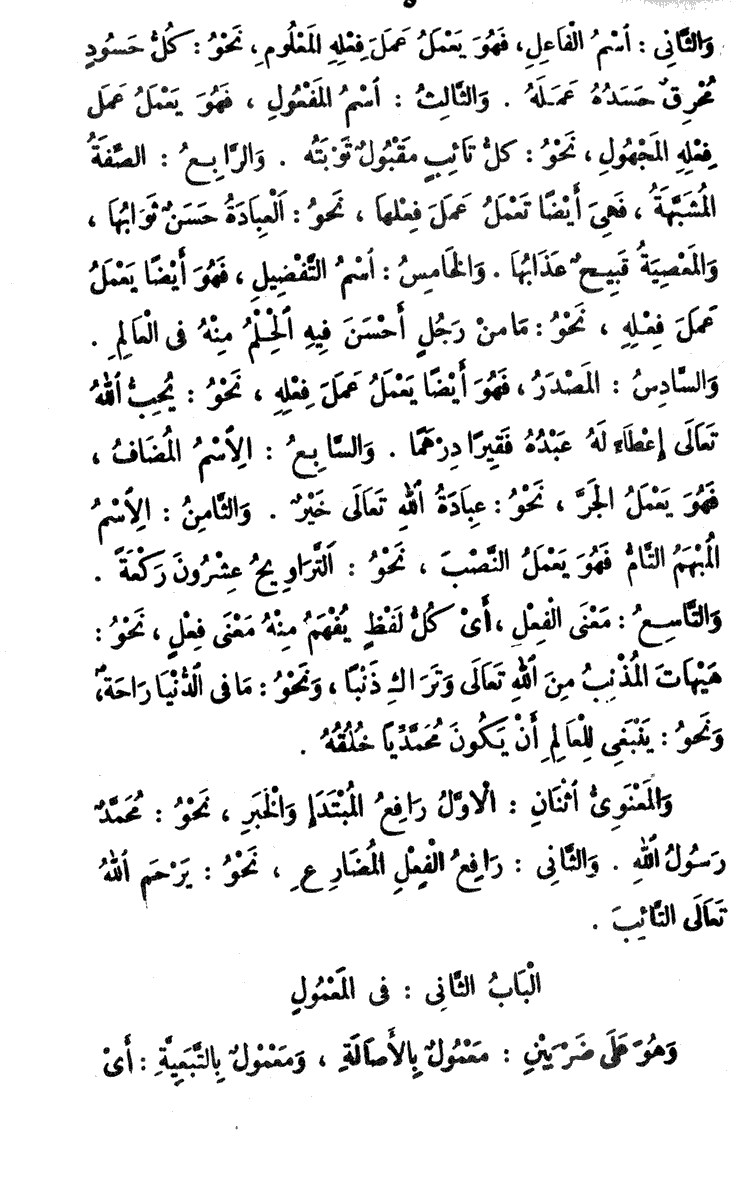 وَالثَّانِي : اَسْمُ الْفَاعِلِ ، فَهُوَ يَعْمَلُ عَمَلَ فِعْلِهِ المَعْلُومِ ، نَحْوُ : كُلُّ حَسُودٍ
مُحْرِقٌ حَسَدُهُ عَمَلَهُ . وَالثَّالِثُ : اَسْمُ المَفْعُولِ ، فَهُوَ يَعْمَلُ عَمَلَ
فِعْلِهِ المَجْهُولِ ، نَحْوُ : كلُّ تَائِبٍ مَقْبُولٌ تَوْبَتُه . وَالرَّابِعُ : الصِّفَةُ
المُشَبَّهَةُ ، فَهِيَ أَيْضًا تَعْمَلُ عَمَلَ فِعْلهاَ ، نَحوُ : اَلْعِبَادَةُ حَسَنٌ ثَوَابُهَا ،
وَالمَعْصِيَةُ قَبِيحٌ عَذَابُهَا . وَالْخَامِسُ : اَسْمُ التَّفْضِيلِ ، فَهُوَ أَيْضًا يَعْمَلُ
عَمَلَ فِعْلِهِ ، نَحْوُ : مَا مِنْ رَجُلٍ أَحْسَنَ فِيهِ اَلْحِلْمُ مِنْهُ فى الْعَالِمِ .
وَالسَّادِسُ : المَصْدَرُ ، فَهُوَ أَيْضًا يَعْمَلُ عَمَلَ فِعْلِهِ ، نَحْوُ : يُحِبُّ اَللهُ
تَعَالَى إِعْطَاءٍ لَهُ عَبْدُهُ فَقِيرًا دِرْهَمًا . وَالسَّابِعُ : الِاَسْمُ المُضَافُ ،
فَهُوَ يَعْمَلُ الجَرَّ ، نَحْوُ : عِبَادَةُ اَللهِ تَعَالَى خَيْرٌ . وَالثَّامِنُ : الِاَسْمُ
المُبْهَمُ التَّامُّ فَهُوَ يَعْمَلُ النَّصْبَ ، نَحْوُ : اَلتَّرَاوِيحُ عِشْرُونَ رَكْعَةً .
وَالتَّاسِعُ : مَعْنَى الْفِعْلِ ، أَىْ كُلُّ لَفْظٍ يُفْهَمُ مِنْهُ مَعْنَى فِعْلٍ ، نَحْوُ :
هَيْهَاتَ المُذْنِبُ مِنَ اَللهِ تَعَالَى وَتَرَاكِ ذَنْبًا ، وَنَحْوُ : مَا فى اَلدُّنْيَا رَاحَةٌ ،
وَنَحوُ : يَنْبَغِى لِلْعَالِمِ أَنْ يَكُونَ مُحَمَّدِيًّا خُلُقُهُ .
وَالمَعْنَوِىُّ اَثْنَانِ : الْاوَّلُ رَافِعُ المُبْتَدَإِ وَالْخَبَرِ ، نَحْوُ : مُحَمَّدٌ
رَسُولُ اَللهِ . وَالثَّانِى : رَافِعُ الْفِعْلِ المُضَارِعِ ، نَحْوُ : يَرْحَمُ اَللهُ
تَعَالَى التَّائِبَ .
الْبَابُ الثَّانِى : فى المَعْمُولِ
وَهُوَ عَلَى ضَرْبَيْنِ : مَعْمُولٌ بِالأَصَالَةِ ، وَمَعْمُولٌ بِالتَّبَعِيَّةِ : أَىْ